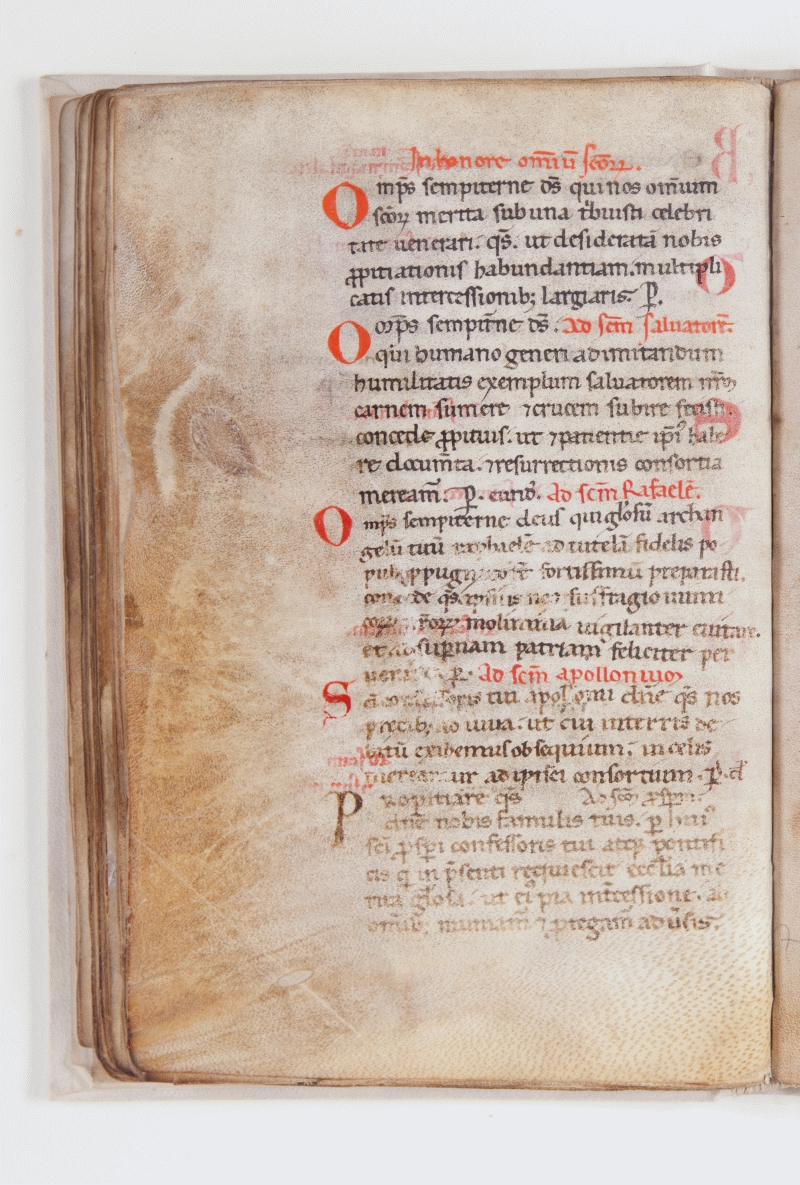 In honore omīū scōꝝ.
Omp̄s sempiterne ds̄ qui nos omīum
scōꝝ merita sub una tͥbuisti celebri
tate uenerari. qs̄. ut desideratā nobis
ꝓpitiationis habundantiam. multipli
catis intercessionibꝫ largiaris. P̲.
Omp̄s sempit̄ne ds̄. Ad sc̄m saluatorē.
qui humano generi ad imitandum
humilitatis exemplum saluatorem nr̄m
carnem sumere ⁊ crucem subire fecisti.
concede ꝓpitius. ut ⁊ patientie ip̄i habe
re docum̄ta. ⁊ resurrectionis consortia
meream̄. P̲. eund̄. Ad sc̄m Rafaelē.
Omp̄s sempiterne deus qui glōsū archan
gelū tuū raphaelē ad tutelā fidelis po
fortissimū preparasti.
suffragio
molimina uigilanter euitare.
et ad sup̄nam patriam feliciter per
P̲. Ad sc̄m apollonium
S tui apollonii dn̄e qs̄ nos
p̄cibꝫ ut cui in terris de
bitū exibemus obsequium. in celis
mereamur ad ipisci consortium. P̲.
Propitiare qs̄ Ad sc̄m
dn̄e nobis famulis tuis. p̲ huiꝰ
sc̄i ꝓsp̲i confessoris tui atqꝫ pontifi
cis q̄ in p̄senti requiescit ecc̄lia me
rita gl̄osa. ut eiꝰ pia int̄cessione. ab
omībꝫ muniam̄ ⁊ p̲tegam̄ adūsis.